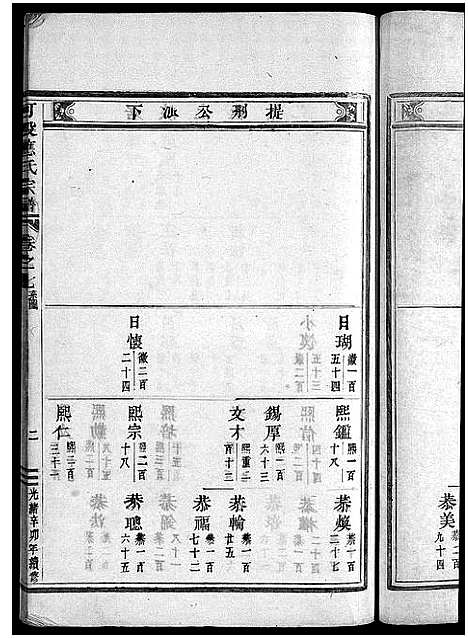 提刑公派下
日瑚
徽一百
五十四
日懷
徽二百
二十四
熙鑑
熙一百
十八
錫厚
熙一百
六十三
文才
熙重二
百十三
熙宗
熙二百
十八
熙仁
熙三百
三十三
恭煥
恭十百
三十七
恭輪
恭一百
廿五
恭福
恭一百
七十二
恭聰
恭一百
六十五
應氏宗譜
卷之七
系圖
二
光緒辛卯年續修
恭美
恭二百
九十四